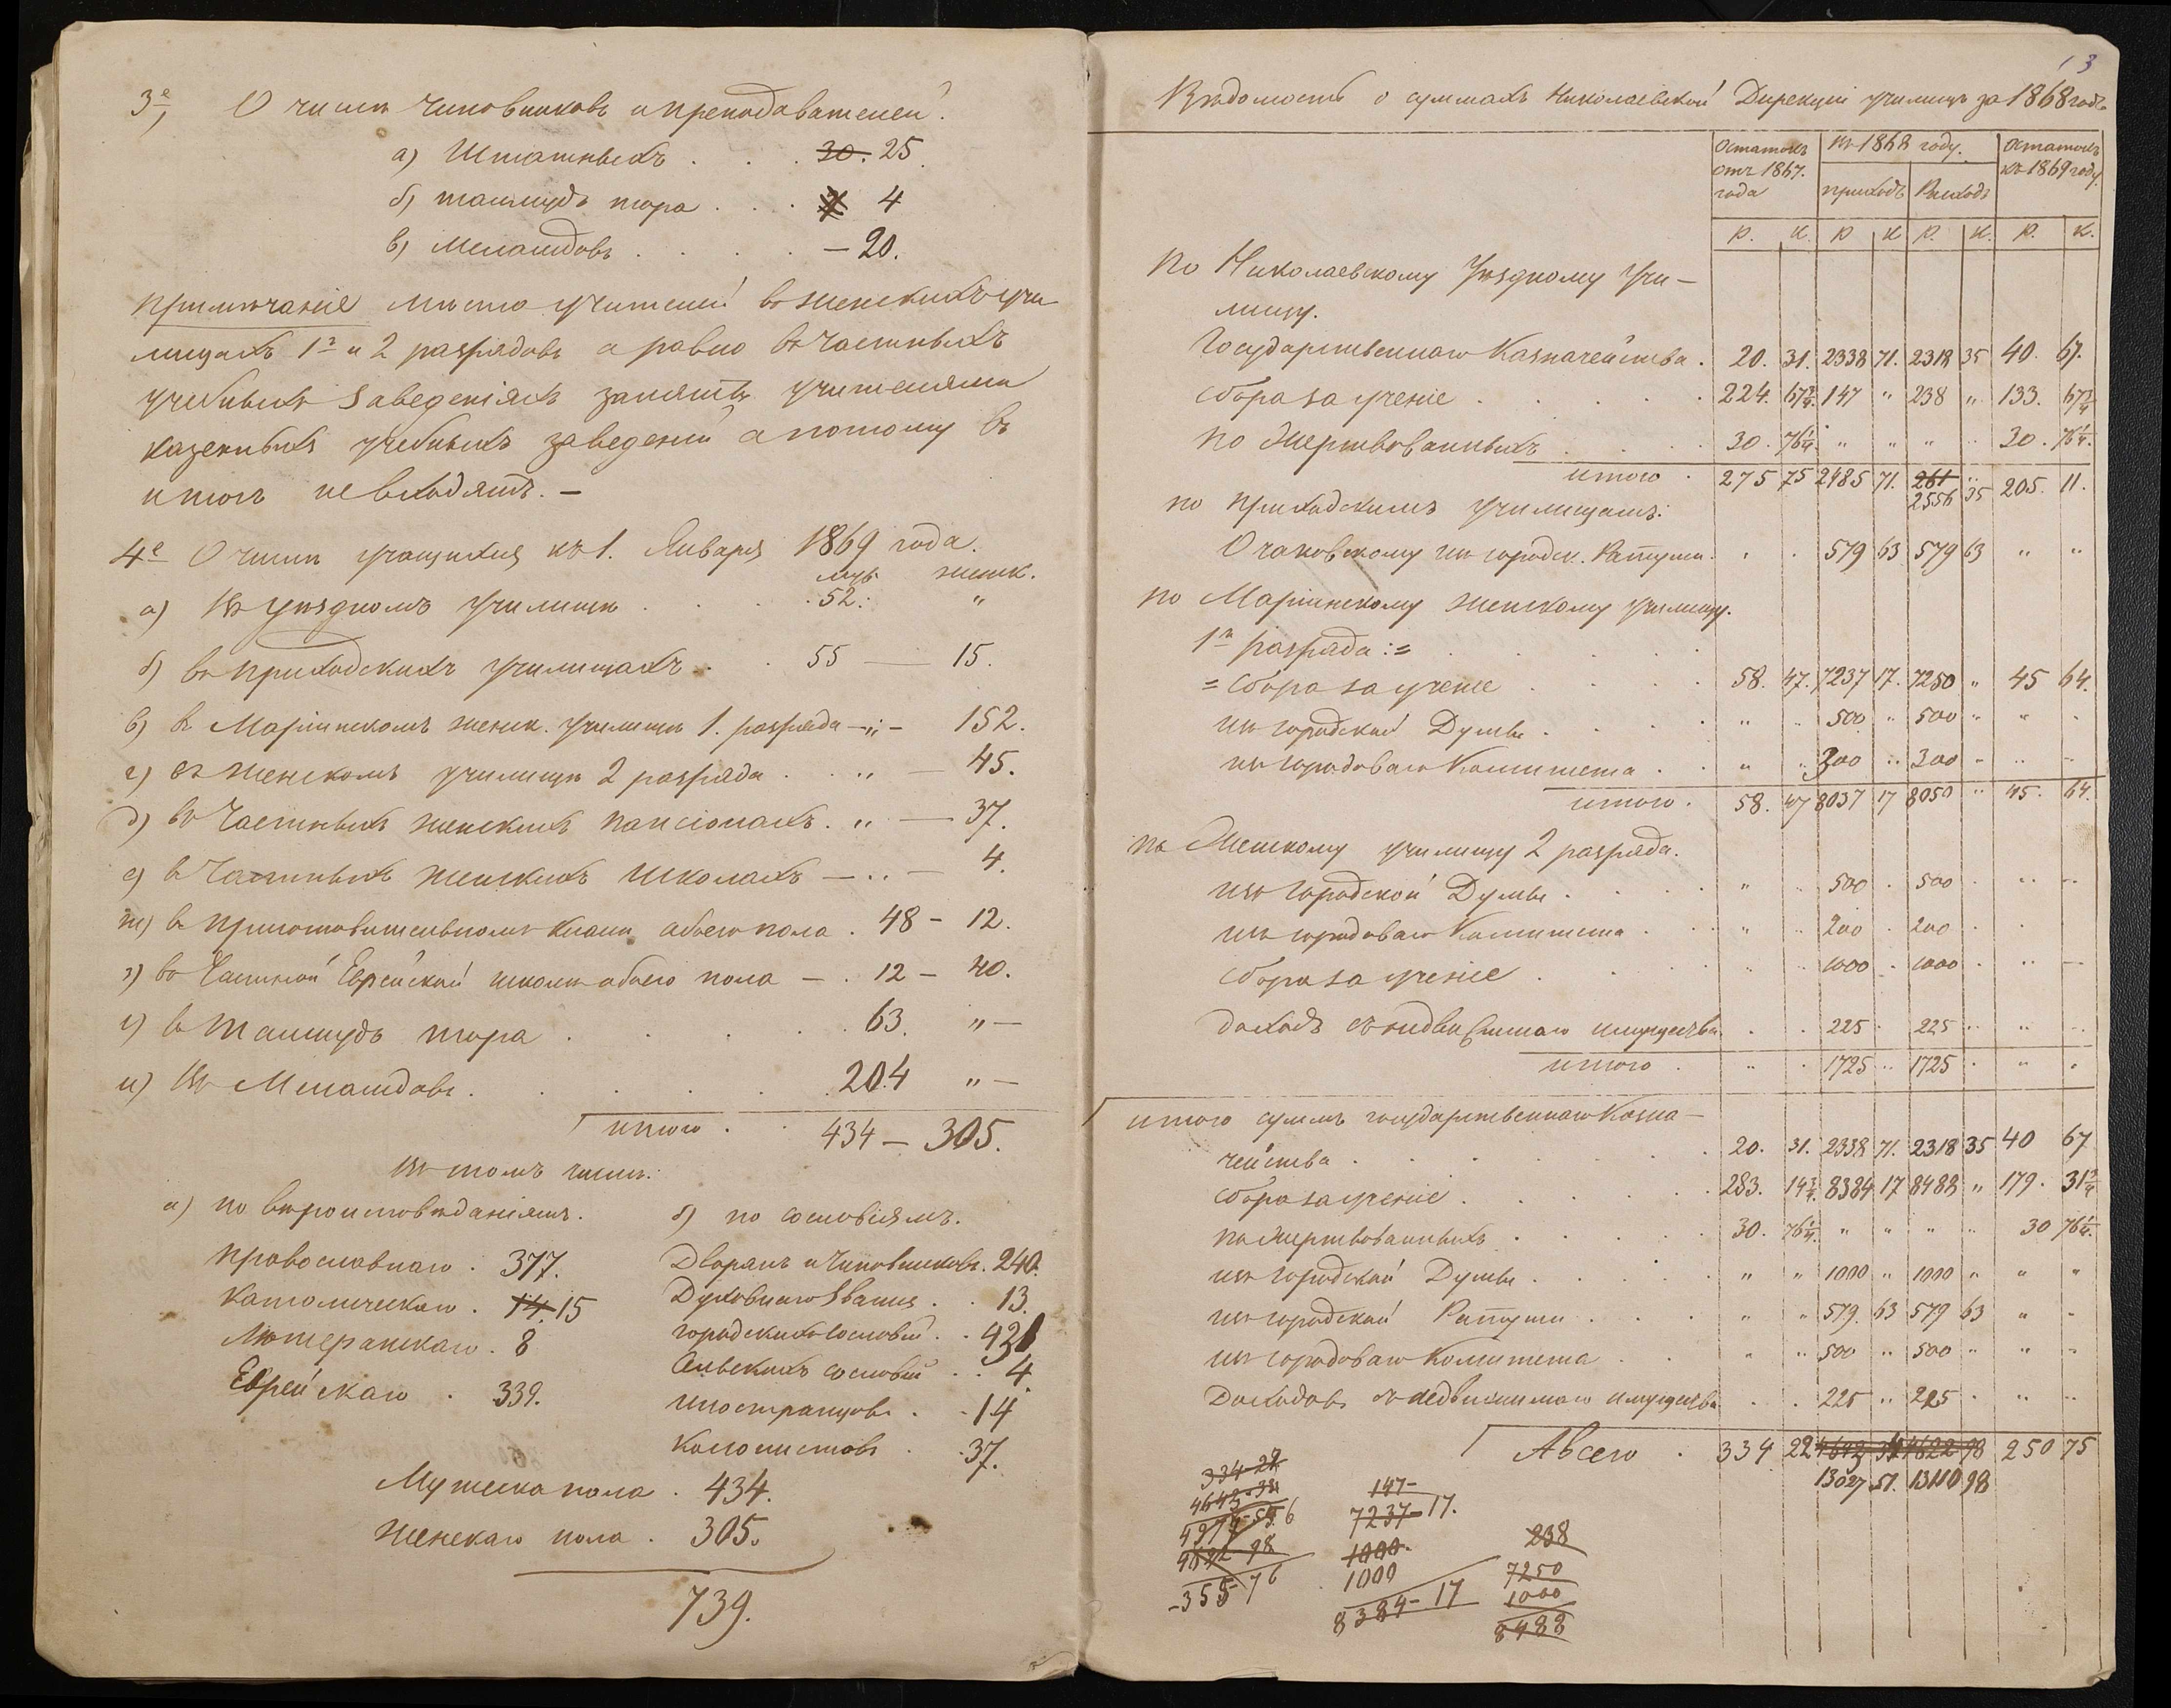 3е, О числѣ Чиновниковъ и преподавателей.
а) Штатныхъ . . . 30. 25.
б) талмудъ тора . . . 7 4
в) Меламдовъ . . . . — 20.
Примѣчаніе мѣста учителей въ женскихъ учи
лищахъ 1го и 2 разрядовъ а равно въ Частныхъ
учебныхъ Заведеніяхъ заняты учителями
казенныхъ учебныхъ заведеній а потому въ
итогъ не входятъ. —
4е О числѣ учащихся къ 1. Января 1869 года.
муж. женск.
а) Въ уѣздномъ училищѣ . . . . 52. "
б) въ приходскихъ училищахъ . . 55 — 15.
в) въ Маріинскомъ женск. училищѣ 1. разряда — " — 152.
г) въ женскомъ училищѣ 2 разряда . . " — 45.
д) въ Частныхъ женскихъ пансіонахъ . " — 37.
е) въ Частныхъ женскихъ школахъ — " — 4.
ж) въ приготовительномъ классѣ обоего пола . 48 — 12.
з) въ Частной Еврейской школѣ обоего пола — . 12 — 40.
і) въ талмудъ тора . . . . . 63. " —
и) Въ Меламдовъ . . . . . 204 " —
итого . . 434 — 305.
Въ томъ числѣ:
а) по вѣроисповѣданіямъ. б) по сословіямъ.
православнаго . 377. Дворянъ и Чиновниковъ . 240.
Католическаго . 14. 15 Духовнаго Званія . . 13.
Лютеранскаго . 8 городскихъ сословій . . 431
Еврейскаго . 339. Сельскихъ сословій . . 4.
иностранцевъ . . 14
Колонистовъ . . 37.
Мужеска пола . 434.
Женскаго пола . 305.
739.
13
Вѣдомость о суммахъ Николаевской Дирекціи училищъ за 1868 годъ
Остатокъ отъ 1867. года
въ 1868 году.
приходъ Расходъ
Остатокъ къ 1869 году.
р. к. р к р. к. р. к.
По Николаевскому Уѣздному Учи—
лищу.
Государственнаго Казначейства . 20. 31. 2338 71. 2318 35 40. 67.
сбора за ученіе . . . . . 224. 67¾. 147 " 238 " 133. 67¾
по жертвованныхъ . . . 30. 76¼. " " " " 30. 76¼.
итого . 275 75 2485 71. 261 2556 35 205. 11.
по приходскимъ училищамъ:
Очаковскому изъ городск. Ратуши . . . 579 63 579 63 " "
по Маріинскому женскому училищу.
1го разряда: = . . .
= сбора за ученіе . . . . 58. 47. 7237 17. 7250 " 45 64.
изъ городской Думы . . . . " " 500 " 500 " " "
изъ городоваго Комитета . . " " 300 " 300 " " "
итого . 58. 47 8037 17 8050 " 45. 64.
по Женскому училищу 2 разряда.
изъ городской Думы . . . . " " 500 . 500 . " "
изъ городоваго Комитета . . " " 200 . 200 . .
сбора за ученіе . . . . " " 1000 . 1000 . " "
доходъ съ недвижимаго имущества . . 225 . 225 " " "
итого . " . 1725 " 1725 . " "
итого суммъ государственнаго Казна—
чейства . . . . . . 20. 31. 2338 71. 2318 35 40 67
сбора за ученіе . . . . . 283. 14¾. 8384 17 8488 " 179. 31¾
по жертвованныхъ . . . . . 30. 76¼. " " " " 30 76¼.
изъ городской Думы . . . . " " 1000 " 1000 " " "
изъ городской Ратуши . . . " " 579. 63 579 63 " "
изъ городоваго Комитета . . " " 500 " 500 " " "
Доходовъ съ недвижимаго имущества . . 225 " 225 . " "
А всего . 334 22 250 75
13027 51. 13110 98
147—
7237—17.
1000.
1000
8384—17
238
7250
1000
8488
—355 76